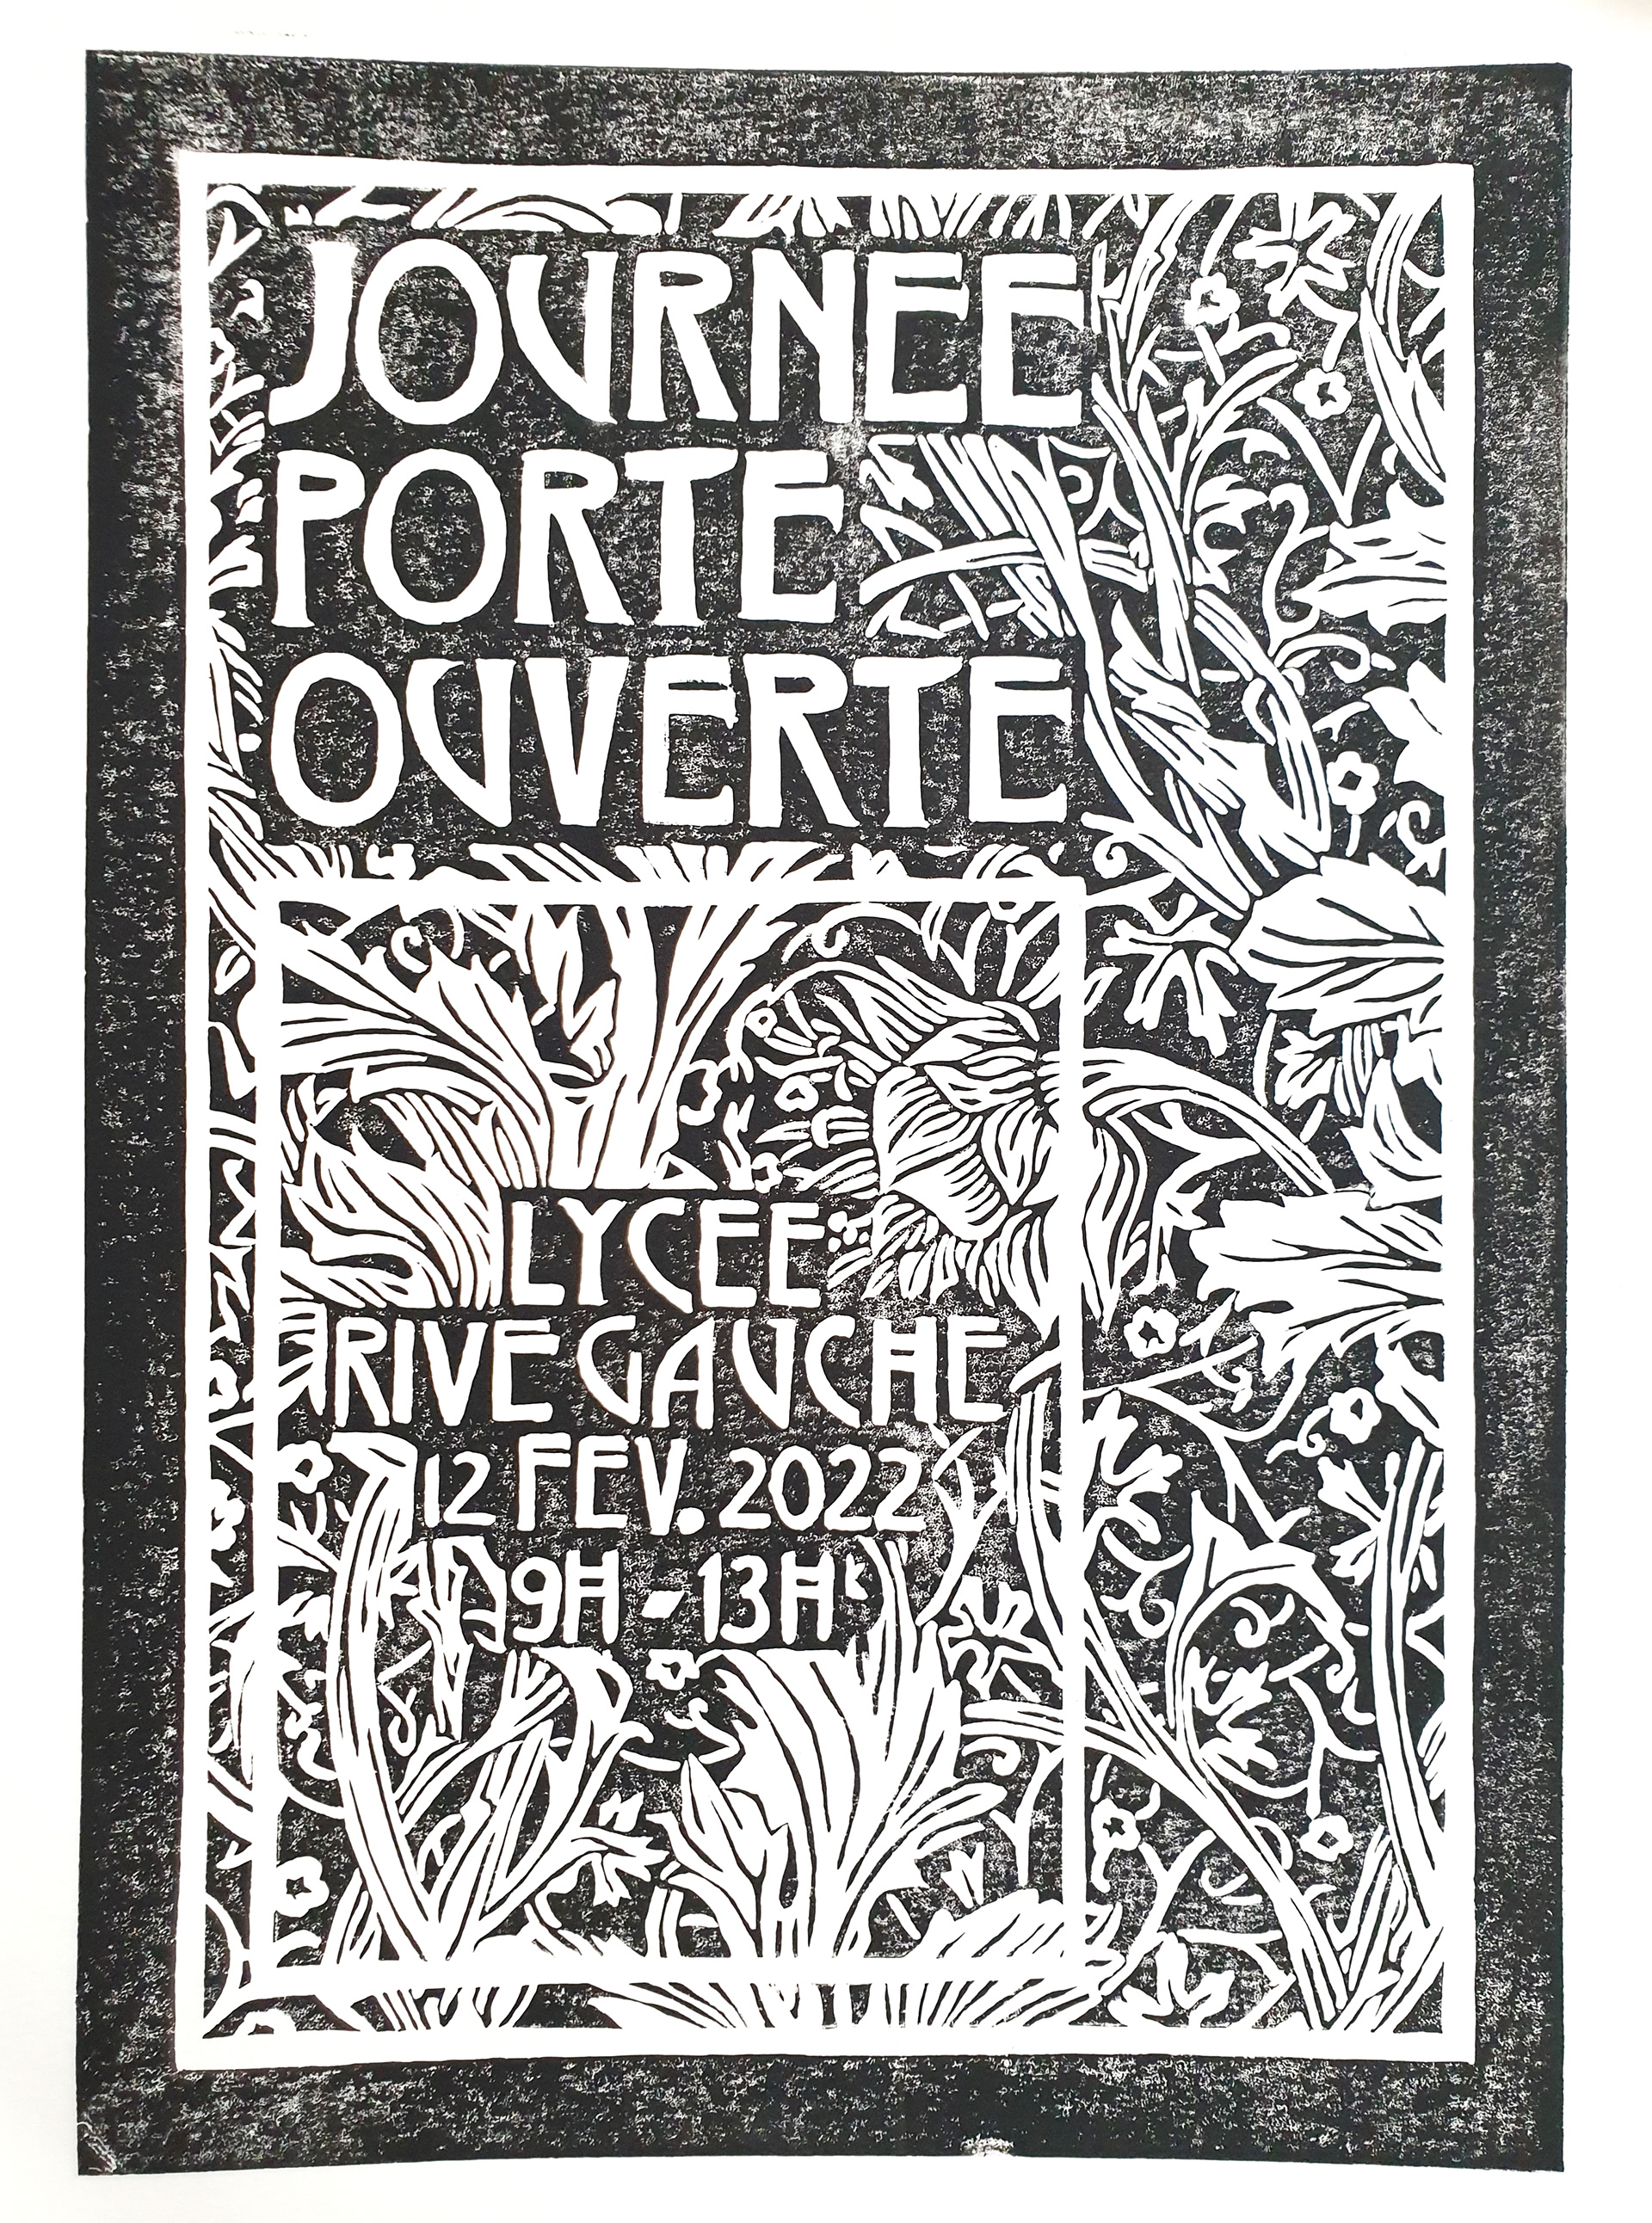 JOURNEE
PORTE
OUVERTE
LYCEE
RIVE GAUCHE
12 FEV. 2022
9H - 13H